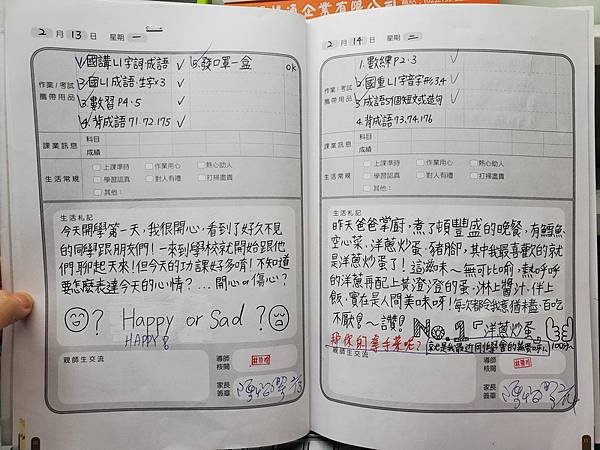 企業有限公司
2月13日 星期一
作業/考試
攜帶用品
1.國講L1字詞.成語✓
2.國L1成語.生字×3✓
3.數習P4.5✓
4.背成語71.72.175✓
5.發口罩一盒
OK
課業訊息
科目
成績
生活常規
□上課準時 □作業用心 □熱心助人
□學習認真 □對人有禮 □打掃盡責
□其他：
生活札記
今天開學第一天，我很開心，看到了好久不見
的同學跟朋友們！一來到學校就開始跟他
們聊起天來！但今天的功課好多唷！不知道
要怎麼表達今天的心情？...開心or傷心？
? Happy or Sad ?
HAPPY
親師生交流
導師
核閱
家長
簽章
2月14日 星期二
作業/考試
攜帶用品
1.數練P2.3✓
2.國重L1字音字形3.4✓
3.成語5個短文或造句✓
4.背成語73.74.176
課業訊息
科目
成績
生活常規
□上課準時 □作業用心 □熱心助人
□學習認真 □對人有禮 □打掃盡責
□其他：
生活札記
昨天爸爸掌廚，煮了頓豐盛的晚餐，有鱈魚、
空心菜、洋蔥炒蛋、豬腳，其中我最喜歡的就
是洋蔥炒蛋了！這滋味～無可比喻，熱呼呼
的洋蔥再配上黃澄澄的蛋，淋上醬汁，伴上
飯，實在是人間美味呀！每次都令我意猶未盡，百吃
不厭！～讚！ No.1『洋蔥炒蛋』
100分
那你的拿手菜呢？
親師生交流
導師
核閱
家長
簽章